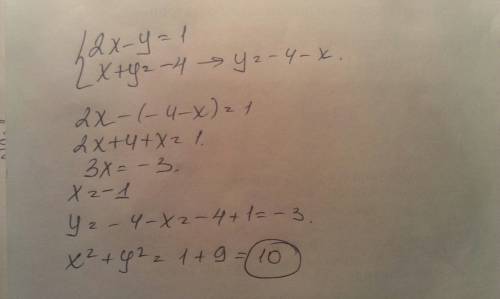 2x-y=1
x+y=-4 → y=-4-x.
2x-(-4-x)=1
2x+4+x=1.
3x=-3.
x=-1
y=-4-x=-4+1=-3.
x²+y²=1+9=10